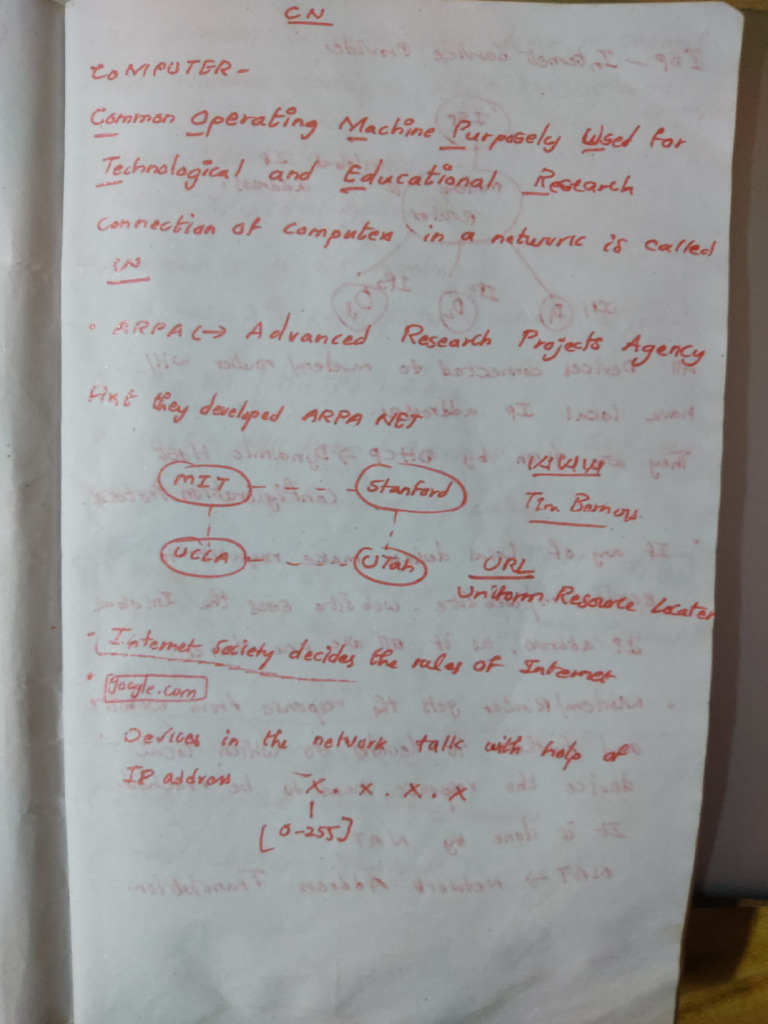 CN
COMPUTER-
Common Operating Machine Purposely Used for
Technological and Educational Research
Connection of computers in a network is called
CN
• ARPA (→ Advanced Research Projects Agency
First they developed ARPA NET
MIT Stanford WWW
Tim Berners.
UCLA UTah URL
Uniform Resource Locater
- Internet Society decides the rules of Internet
• google.com
Devices in the network talk with help of
IP address X. X. X. X
[0-255]